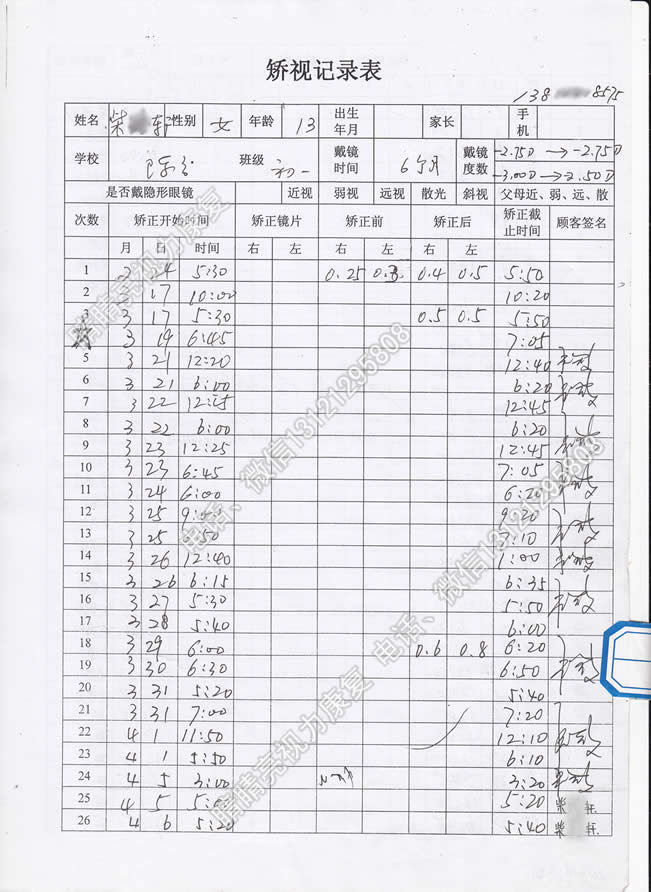 矫视记录表
138 8575
姓名 柴 轩 性别 女 年龄 13 出生年月 家长 手机
学校 班级 初一 戴镜时间 6个月 戴镜度数 -2.75D → -2.75D
-3.00D → -2.50D
是否戴隐形眼镜 近视 弱视 远视 散光 斜视 父母近、弱、远、散
次数 矫正开始时间 矫正镜片 矫正前 矫正后 矫正截止时间 顾客签名
月 日 时间 右 左 右 左 右 左
1 24 5:30 0.25 0.3 0.4 0.5 5:50
2 17 10:00 10:20
3 3 17 5:30 0.5 0.5 5:50
3 19 6:45 7:05
5 3 21 12:20 12:40
6 3 21 6:00 6:20
7 3 22 12:25 12:45
8 3 22 6:00 6:20
9 3 23 12:25 12:45
10 3 23 6:45 7:05
11 3 24 6:00 6:20
12 3 25 9:00 9:20
13 3 25 6:50 7:10
14 3 26 12:40 1:00
15 3 26 6:15 6:35
16 3 27 5:30 5:50
17 3 28 5:40 6:00
18 3 29 6:00 0.6 0.8 6:20
19 3 30 6:30 6:50
20 3 31 5:20 5:40
21 3 31 7:00 7:20
22 4 1 11:50 12:10
23 4 1 5:50 6:10
24 4 5 3:00 3:20
25 4 5 5:00 5:20 柴 轩
26 4 6 5:20 5:40 柴 轩
睛睛亮视力康复 电话、微信13121295808
电话、微信13121295808